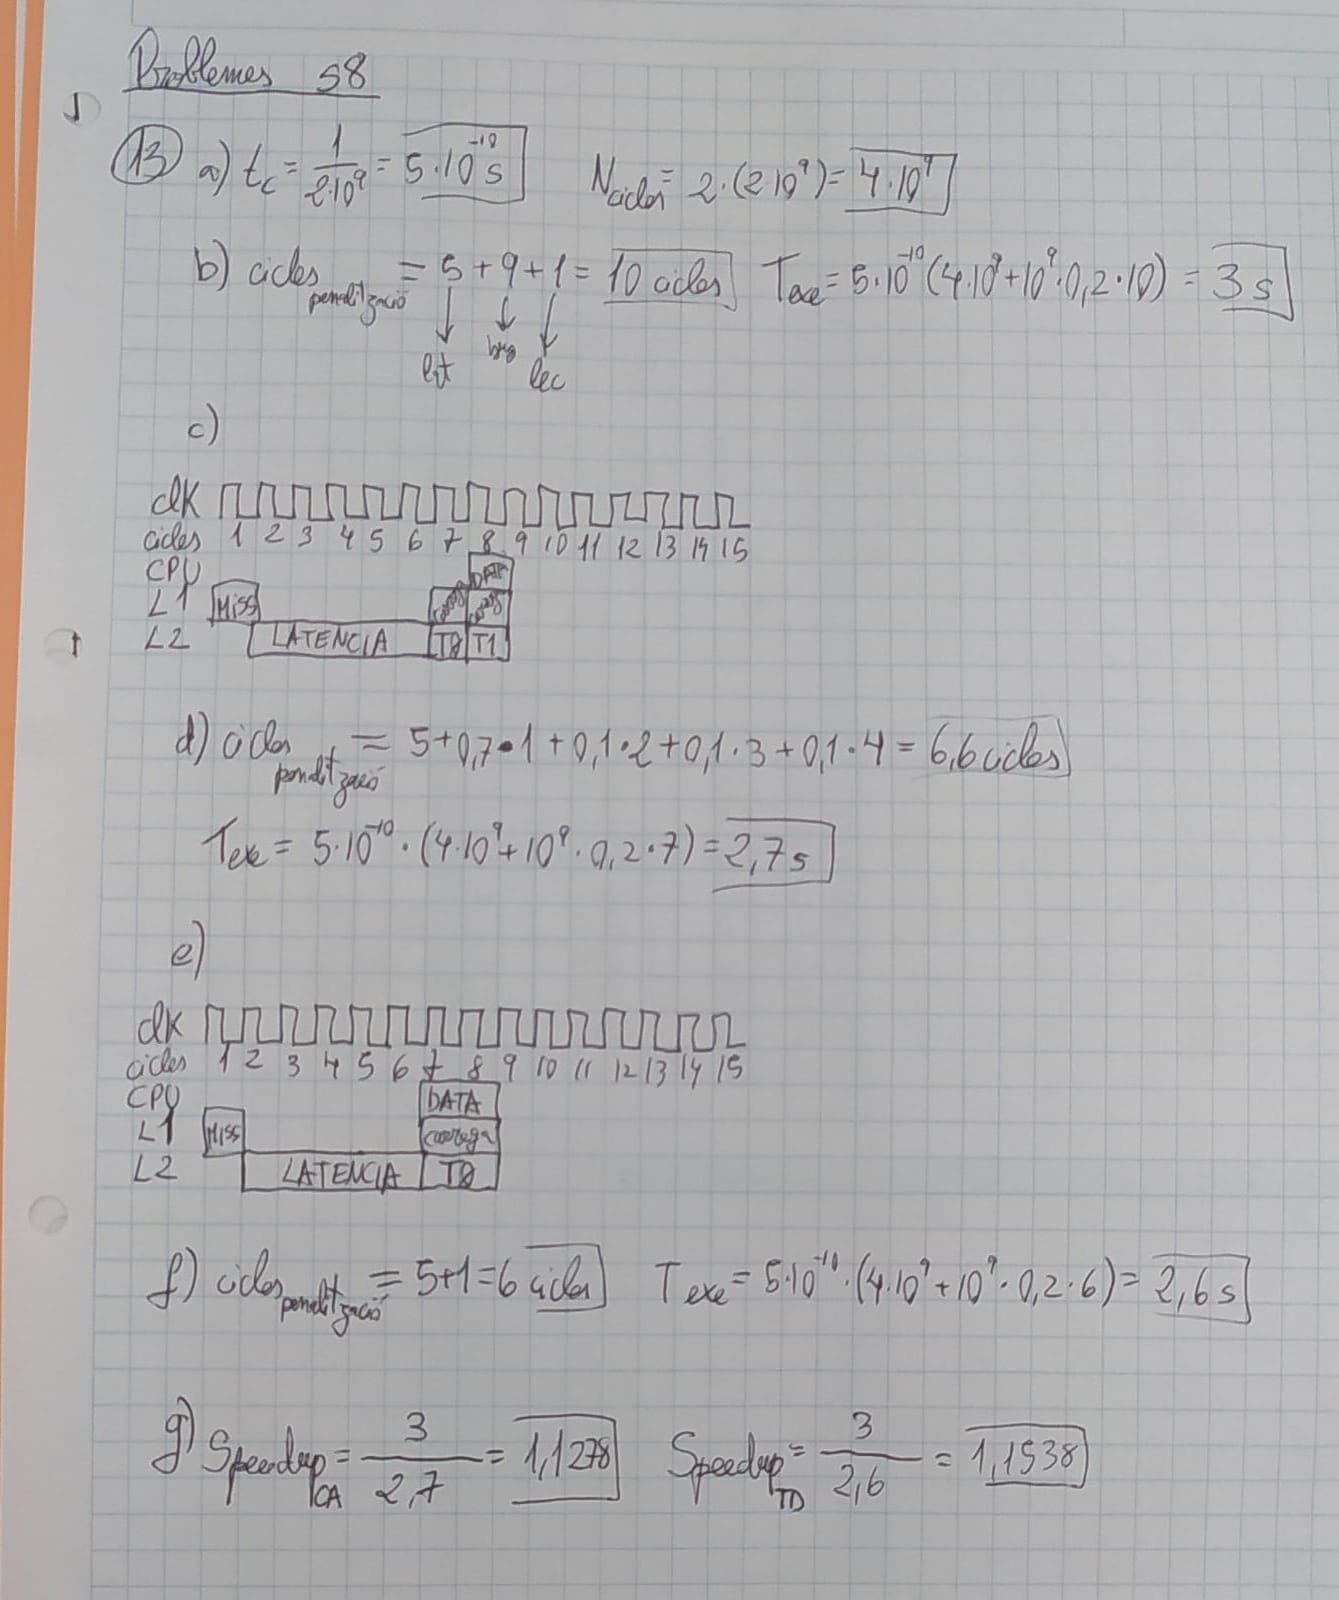 Problemes S8
13 a) tc = 1/2·10⁹ = 5·10⁻¹⁰ s   Ncicles = 2·(2·10⁹) = 4·10⁹
b) cicles penalització = 5 + 4 + 1 = 10 cicles   Texe = 5·10⁻¹⁰ (4·10⁹ + 10⁹·0,2·10) = 3 s
lat   lec
c)
clk
cicles 1 2 3 4 5 6 7 8 9 10 11 12 13 14 15
CPU DATA
L1 MISS
L2 LATENCIA T0 T1
d) cicles penalització = 5 + 0,7·1 + 0,1·2 + 0,1·3 + 0,1·4 = 6,6 cicles
Texe = 5·10⁻¹⁰ · (4·10⁹ + 10⁹ · 0,2·7) = 2,7 s
e)
clk
cicles 1 2 3 4 5 6 7 8 9 10 11 12 13 14 15
CPU DATA
L1 MISS carrega
L2 LATENCIA T0
f) cicles penalització = 5+1 = 6 cicles   Texe = 5·10⁻¹⁰ · (4·10⁹ + 10⁹ · 0,2·6) = 2,6 s
g) Speedup CA = 3/2,7 = 1,1278   Speedup TD = 3/2,6 = 1,1538